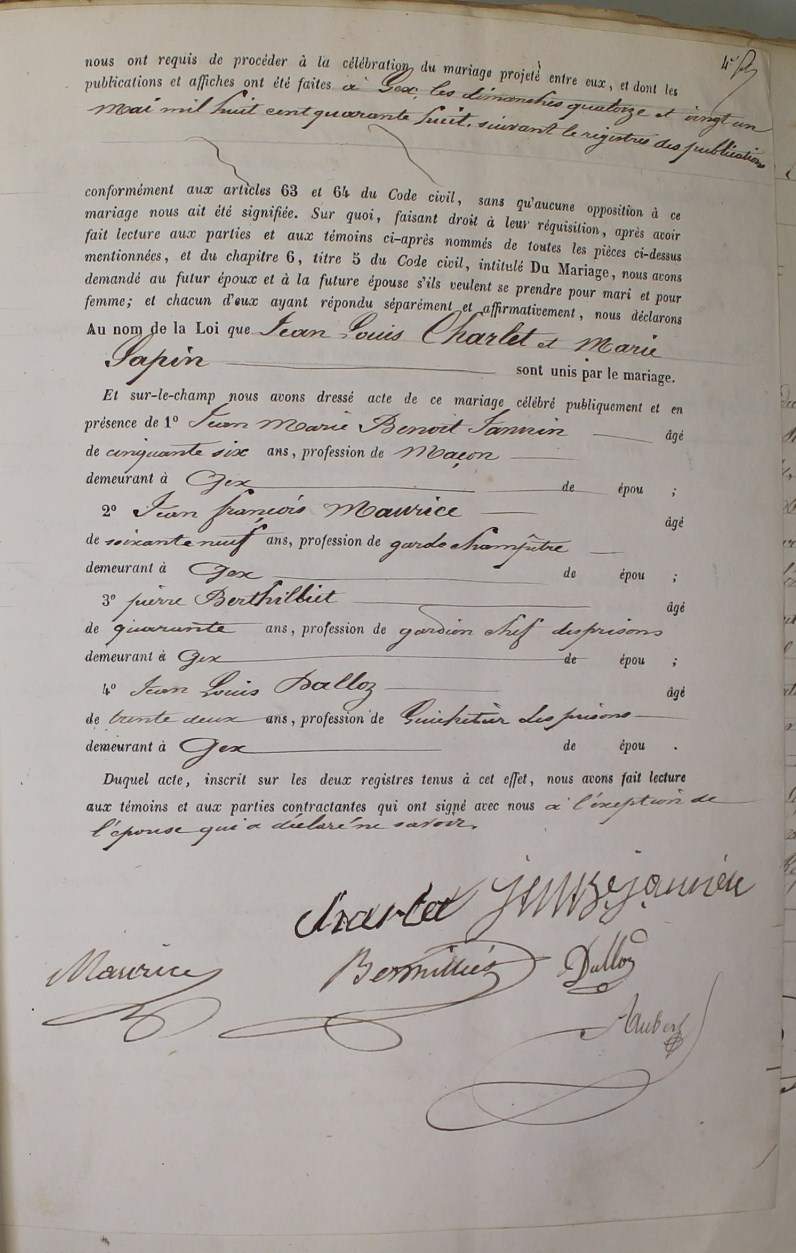 nous ont requis de procéder à la célébration du mariage projeté entre eux, et dont les
publications et affiches ont été faites à Gex, les dimanches quatorze et vingt un
Mai mil huit cent quarante huit, suivant le registres des publications
conformément aux articles 63 et 64 du Code civil, sans qu'aucune opposition à ce
mariage nous ait été signifiée. Sur quoi, faisant droit à leur réquisition, après avoir
fait lecture aux parties et aux témoins ci-après nommés de toutes les pièces ci-dessus
mentionnées, et du chapitre 6, titre 5 du Code civil, intitulé Du Mariage, nous avons
demandé au futur époux et à la future épouse s'ils veulent se prendre pour mari et pour
femme; et chacun d'eux ayant répondu séparément et affirmativement, nous déclarons
Au nom de la Loi que Jean Louis Charlet et Marie
Sapin sont unis par le mariage.
Et sur-le-champ nous avons dressé acte de ce mariage célébré publiquement et en
présence de 1º Jean Marie Benoit Jannin âgé
de cinquante six ans, profession de Maçon
demeurant à Gex de épou ;
2º Jean françois Maurice âgé
de soixante neuf ans, profession de garde champêtre
demeurant à Gex de épou ;
3º pierre Berthilliet âgé
de quarante ans, profession de gardien chef des prisons
demeurant à Gex de épou ;
4º Jean Louis Dalloz âgé
de trente deux ans, profession de Guichetier des prisons
demeurant à Gex de épou .
Duquel acte, inscrit sur les deux registres tenus à cet effet, nous avons fait lecture
aux témoins et aux parties contractantes qui ont signé avec nous a l'éxeption de
l'épouse qui a déclaré ne savoir.
charlet
Maurice Dalloz